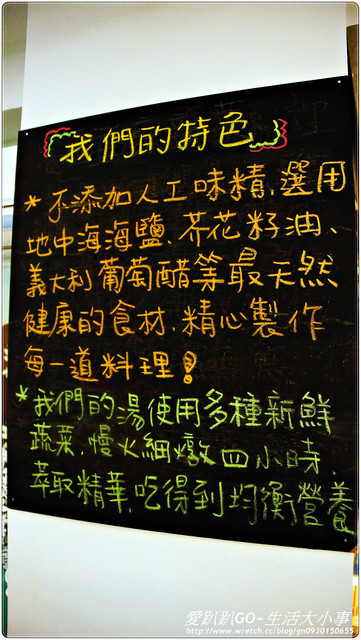 我們的特色
*不添加人工味精,選用
地中海海鹽、芥花籽油、
義大利葡萄醋等最天然
健康的食材,精心製作
每一道料理!
*我們的湯使用多種新鮮
蔬菜,慢火細燉四小時,
萃取精華,吃得到均衡營養
愛趴趴GO-生活大小事
http://www.wretch.cc/blog/gn0930150655